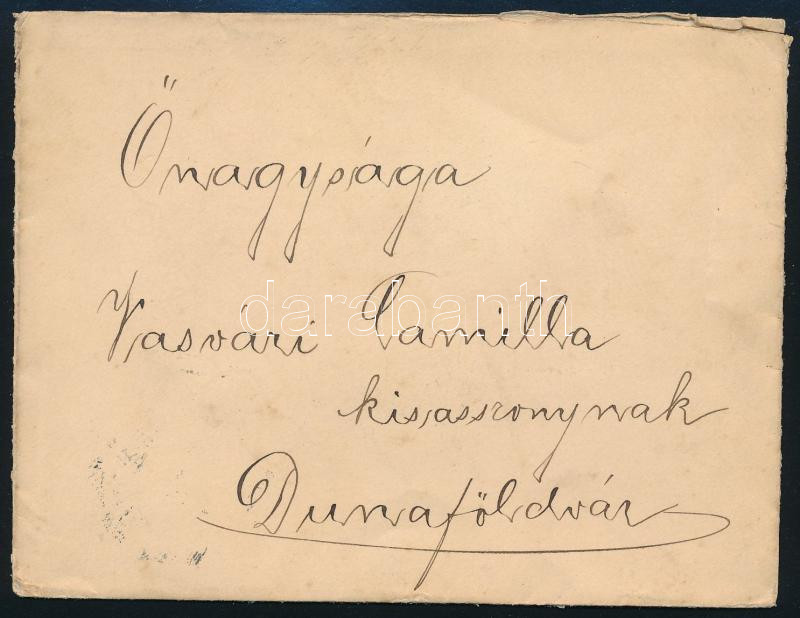 Őnagysága
Vasvári Camilla
kisasszonynak
Dunaföldvár
darabanth